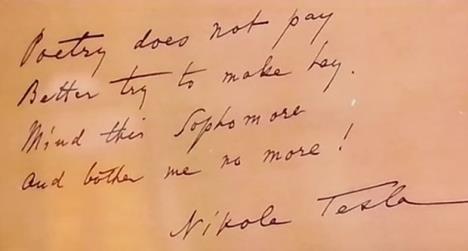 Poetry does not pay
Better try to make hay.
Mind this Sophomore
and bother me no more!
Nikola Tesla